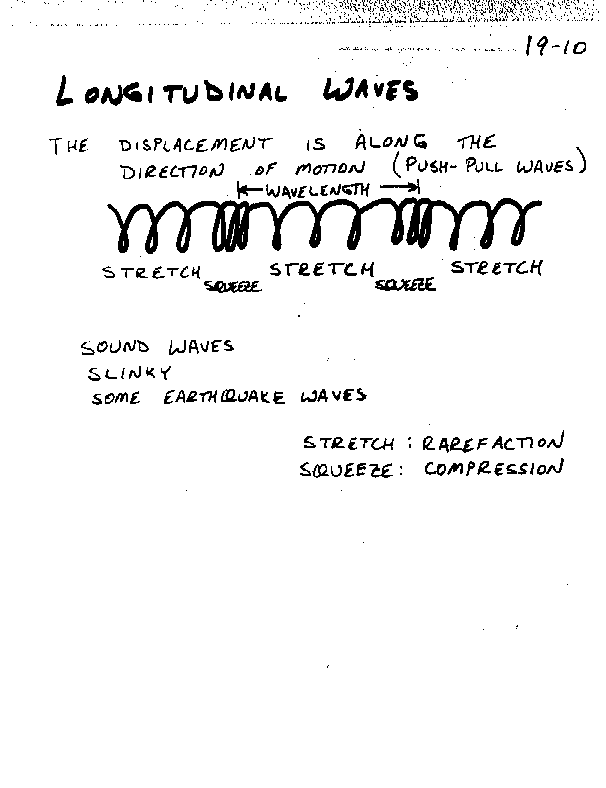 19-10
LONGITUDINAL WAVES
THE DISPLACEMENT IS ALONG THE
DIRECTION OF MOTION (PUSH-PULL WAVES)
WAVELENGTH
STRETCH STRETCH STRETCH
SQUEEZE SQUEEZE
SOUND WAVES
SLINKY
SOME EARTHQUAKE WAVES
STRETCH : RAREFACTION
SQUEEZE : COMPRESSION